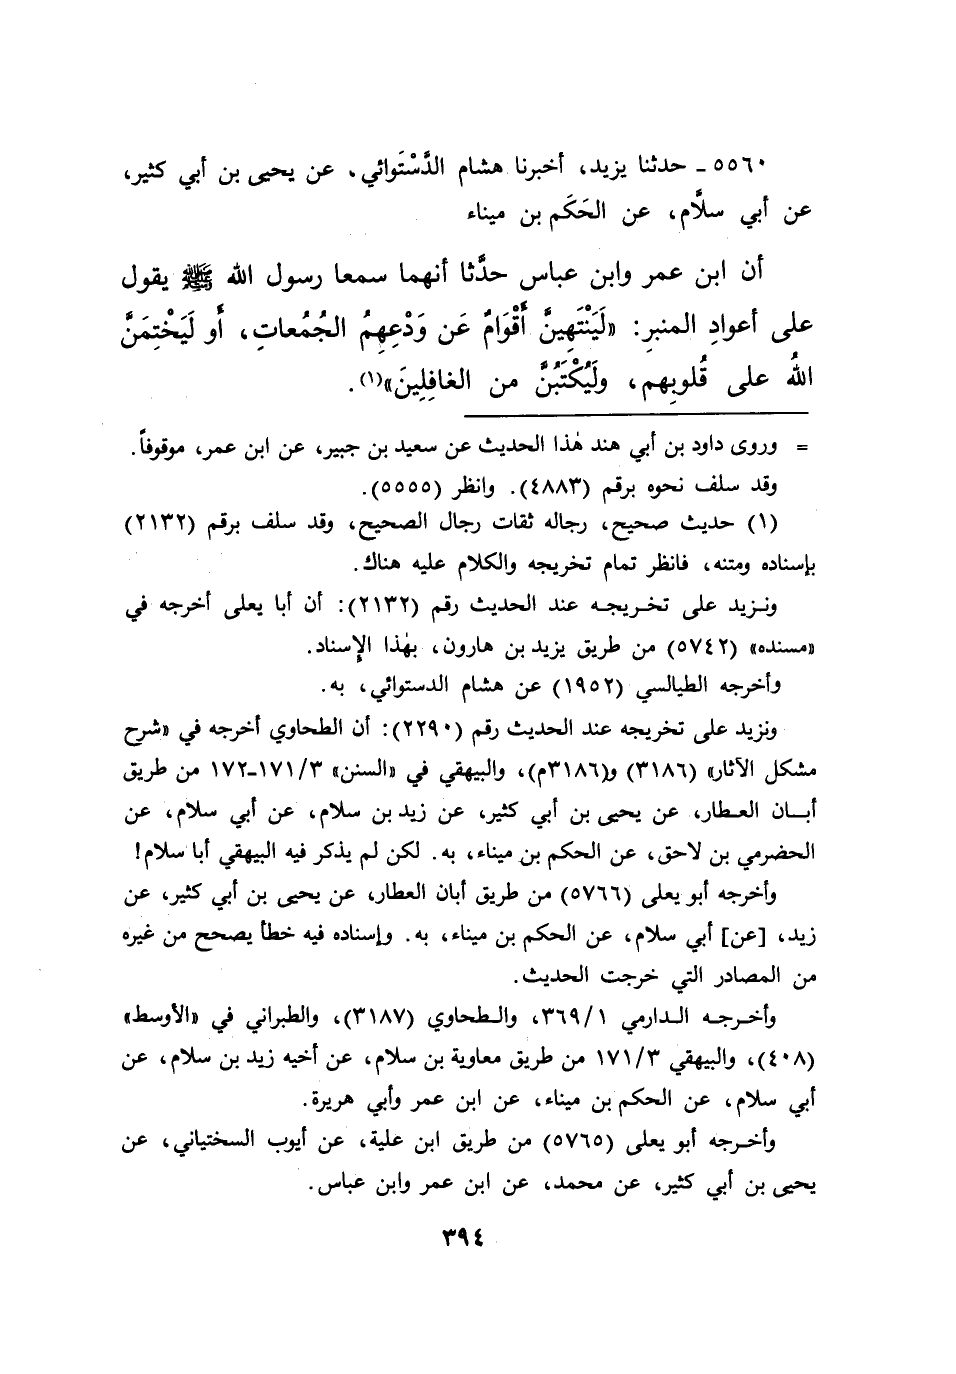 ٥٥٦٠ ـ حدثنا يزيد، أخبرنا هشام الدَّسْتَوائي، عن يحيى بن أبي كثير،
عن أبي سلَّام، عن الحَكَم بن ميناء
أن ابن عمر وابن عباس حدَّثا أنهما سمعا رسول الله ﷺ يقول
على أعوادِ المنبرِ: «لَيَنْتَهِينَّ أَقْوَامٌ عَن وَدْعِهِمُ الجُمُعاتِ، أَو لَيَخْتِمَنَّ
اللهُ على قُلوبِهم، ولَيُكْتَبُنَّ من الغافِلِينَ»(١).
= وروى داود بن أبي هند هٰذا الحديث عن سعيد بن جبير، عن ابن عمر، موقوفاً.
وقد سلف نحوه برقم (٤٨٨٣). وانظر (٥٥٥٥).
(١) حديث صحيح، رجاله ثقات رجال الصحيح، وقد سلف برقم (٢١٣٢)
بإسناده ومتنه، فانظر تمام تخريجه والكلام عليه هناك.
ونزيد على تخريجه عند الحديث رقم (٢١٣٢): أن أبا يعلى أخرجه في
«مسنده» (٥٧٤٢) من طريق يزيد بن هارون، بهٰذا الإِسناد.
وأخرجه الطيالسي (١٩٥٢) عن هشام الدستوائي، به.
ونزيد على تخريجه عند الحديث رقم (٢٢٩٠): أن الطحاوي أخرجه في «شرح
مشكل الآثار» (٣١٨٦) و(٣١٨٦م)، والبيهقي في «السنن» ٣/‏١٧١-١٧٢ من طريق
أبان العطار، عن يحيى بن أبي كثير، عن زيد بن سلام، عن أبي سلام، عن
الحضرمي بن لاحق، عن الحكم بن ميناء، به. لكن لم يذكر فيه البيهقي أبا سلام!
وأخرجه أبو يعلى (٥٧٦٦) من طريق أبان العطار، عن يحيى بن أبي كثير، عن
زيد، [عن] أبي سلام، عن الحكم بن ميناء، به. وإسناده فيه خطأ يصحح من غيره
من المصادر التي خرجت الحديث.
وأخرجه الدارمي ١/‏٣٦٩، والطحاوي (٣١٨٧)، والطبراني في «الأوسط»
(٤٠٨)، والبيهقي ٣/‏١٧١ من طريق معاوية بن سلام، عن أخيه زيد بن سلام، عن
أبي سلام، عن الحكم بن ميناء، عن ابن عمر وأبي هريرة.
وأخرجه أبو يعلى (٥٧٦٥) من طريق ابن علية، عن أيوب السختياني، عن
يحيى بن أبي كثير، عن محمد، عن ابن عمر وابن عباس.
٣٩٤